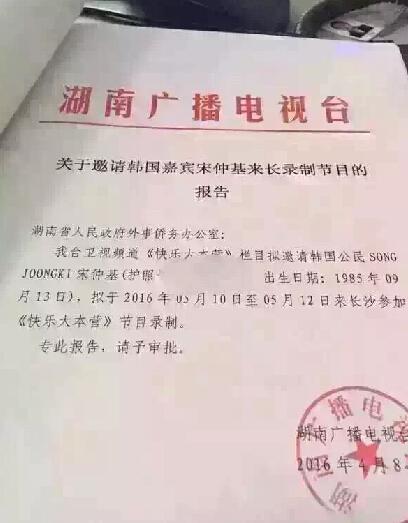 湖南广播电视台
关于邀请韩国嘉宾宋仲基来长录制节目的
报告
湖南省人民政府外事侨务办公室:
我台卫视频道《快乐大本营》栏目拟邀请韩国公民 SONG
JOONGKI 宋仲基(护照 出生日期:1985 年 09
月 13 日),拟于 2016 年 05 月 10 日至 05 月 12 日来长沙参加
《快乐大本营》节目录制。
专此报告,请予审批。
湖南广播电视台
2016 年 4 月 8
湖南广播电